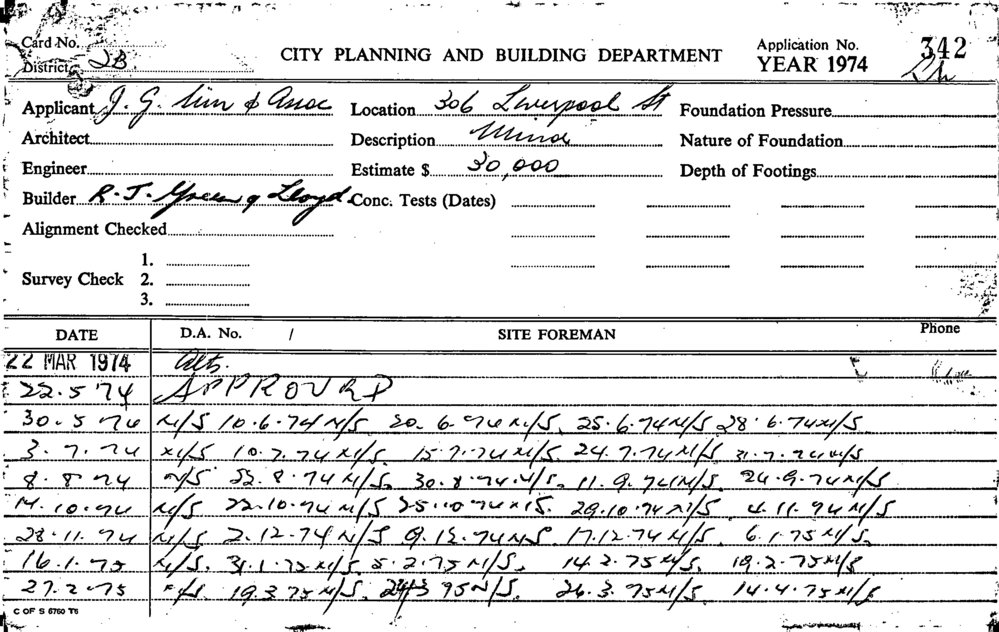 Card No.
District 2B
CITY PLANNING AND BUILDING DEPARTMENT
Application No. 342
YEAR 1974
Applicant J. G. Sim & Assoc Location 306 Liverpool St Foundation Pressure
Architect Description Minor Nature of Foundation
Engineer Estimate $ 30,000 Depth of Footings
Builder R. J. Green & Lloyd Conc. Tests (Dates)
Alignment Checked
1.
Survey Check 2.
3.
DATE D.A. No. / SITE FOREMAN Phone
22 MAR 1974 Alts.
22.5 74 APPROVED
30.5 74 N/S 10.6.74 N/S 20.6.74 N/S, 25.6.74 N/S 28.6.74 N/S
3.7.74 N/S 10.7.74 N/S 15.7.74 N/S 24.7.74 N/S 31.7.74 N/S
8.8 74 N/S 22.8.74 N/S. 30.8.74 N/S. 11.9.74 N/S. 24.9.74 N/S
14.10.74 N/S 22.10.74 N/S 25.10 74 N/S. 29.10.74 N/S 4.11.74 N/S
28.11.74 N/S 2.12.74 N/S 9.12.74 N/S 17.12.74 N/S 6.1.75 N/S.
16.1.75 N/S. 31.1.75 N/S 5.2.75 N/S. 14.2.75 N/S. 19.2.75 N/S
27.2.75 N/S. 19.3 75 N/S. 75 N/S. 26.3.75 N/S. 14.4.75 N/S
C OF S 6760 T6